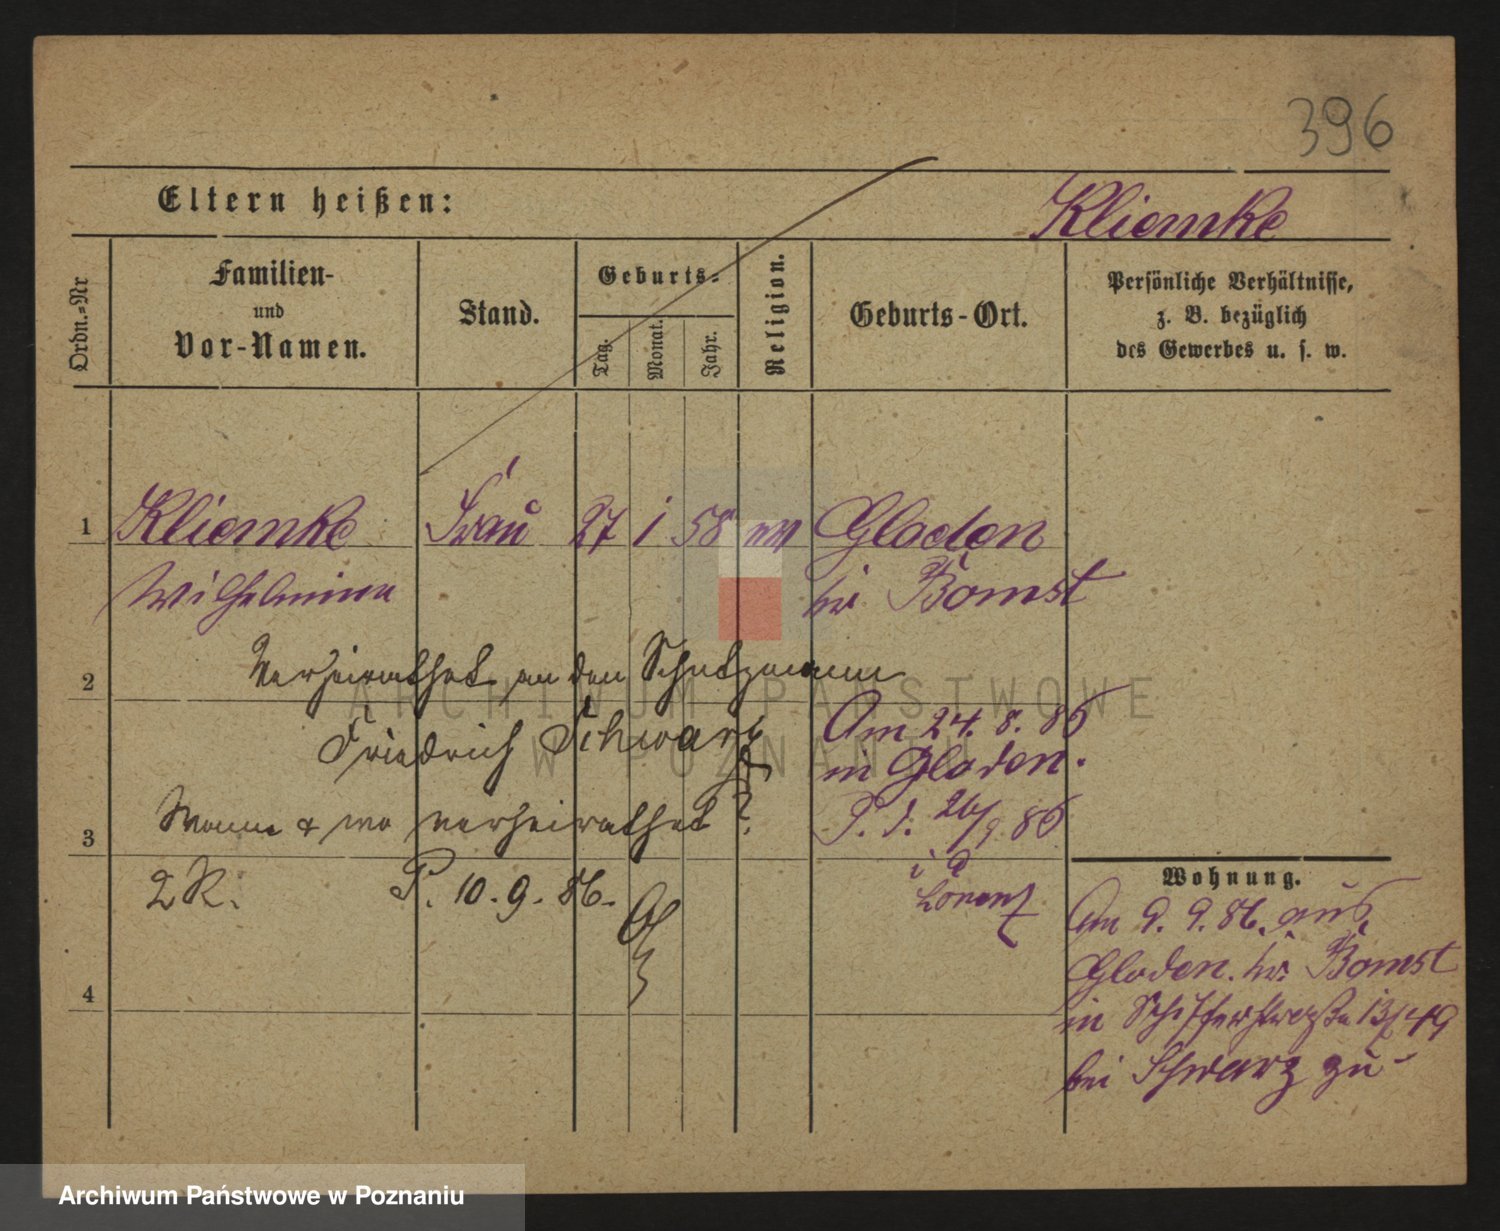 396
Eltern heißen:
Kliemke
Ordn.=Nr
Familien-
und
Vor-Namen.
Stand.
Geburts=
Tag.
Monat.
Jahr.
Religion.
Geburts-Ort.
Persönliche Verhältnisse,
z. B. bezüglich
des Gewerbes u. s. w.
1
Kliemke Frau 27 1 58 ev Gloden
Wilhelmine bei Bomst
2
Verheirathet an den Schutzmann
Friedrich Schwarz
Am 24. 8. 86
in Gloden.
3
Wann & wo verheirathet?
P. d. 26/9 86
2 R. P. 10. 9. 86.
Lorenz
Wohnung.
Am 9. 9. 86. aus
Gloden bei Bomst
in Schifferstraße 13/49
bei Schwarz zu
4
ARCHIWUM PAŃSTWOWE
W POZNANIU
Archiwum Państwowe w Poznaniu